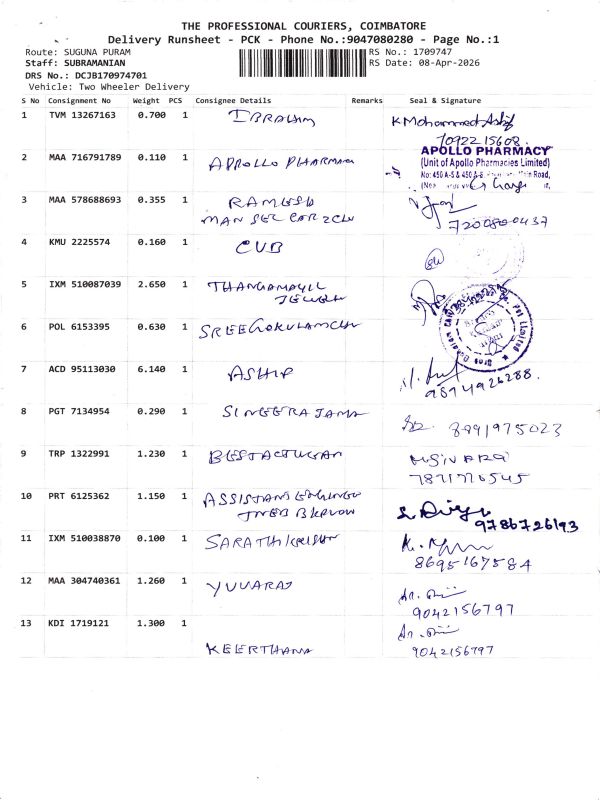 THE PROFESSIONAL COURIERS, COIMBATORE
Delivery Runsheet - PCK - Phone No.:9047080280 - Page No.:1
Route: SUGUNA PURAM
RS No.: 1709747
Staff: SUBRAMANIAN
RS Date: 08-Apr-2026
DRS No.: DCJB170974701
Vehicle: Two Wheeler Delivery
S No Consignment No Weight PCS Consignee Details Remarks Seal & Signature
1 TVM 13267163 0.700 1 IBRAHIM K Mohammed Asif
7092215608
2 MAA 716791789 0.110 1 APPOLLO PHARMACY
APOLLO PHARMACY
(Unit of Apollo Pharmacies Limited)
No: 450 A-5 & 450 A-6 Main Road,
3 MAA 578688693 0.355 1 RAMESH
7200800437
4 KMU 2225574 0.160 1 CUB
5 IXM 510087039 2.650 1 THANGAMAYIL
6 POL 6153395 0.630 1 SREEGOKULAMCHI
7 ACD 95113030 6.140 1 ASHIP
8 PGT 7134954 0.290 1 SINGERAJAMA 8991975023
9 TRP 1322991 1.230 1
10 PRT 6125362 1.150 1
9786726193
11 IXM 510038870 0.100 1 SARATHIKRISH
8695167584
12 MAA 304740361 1.260 1 YUVARAJ
9042156797
13 KDI 1719121 1.300 1
KEERTHANA 9042156797